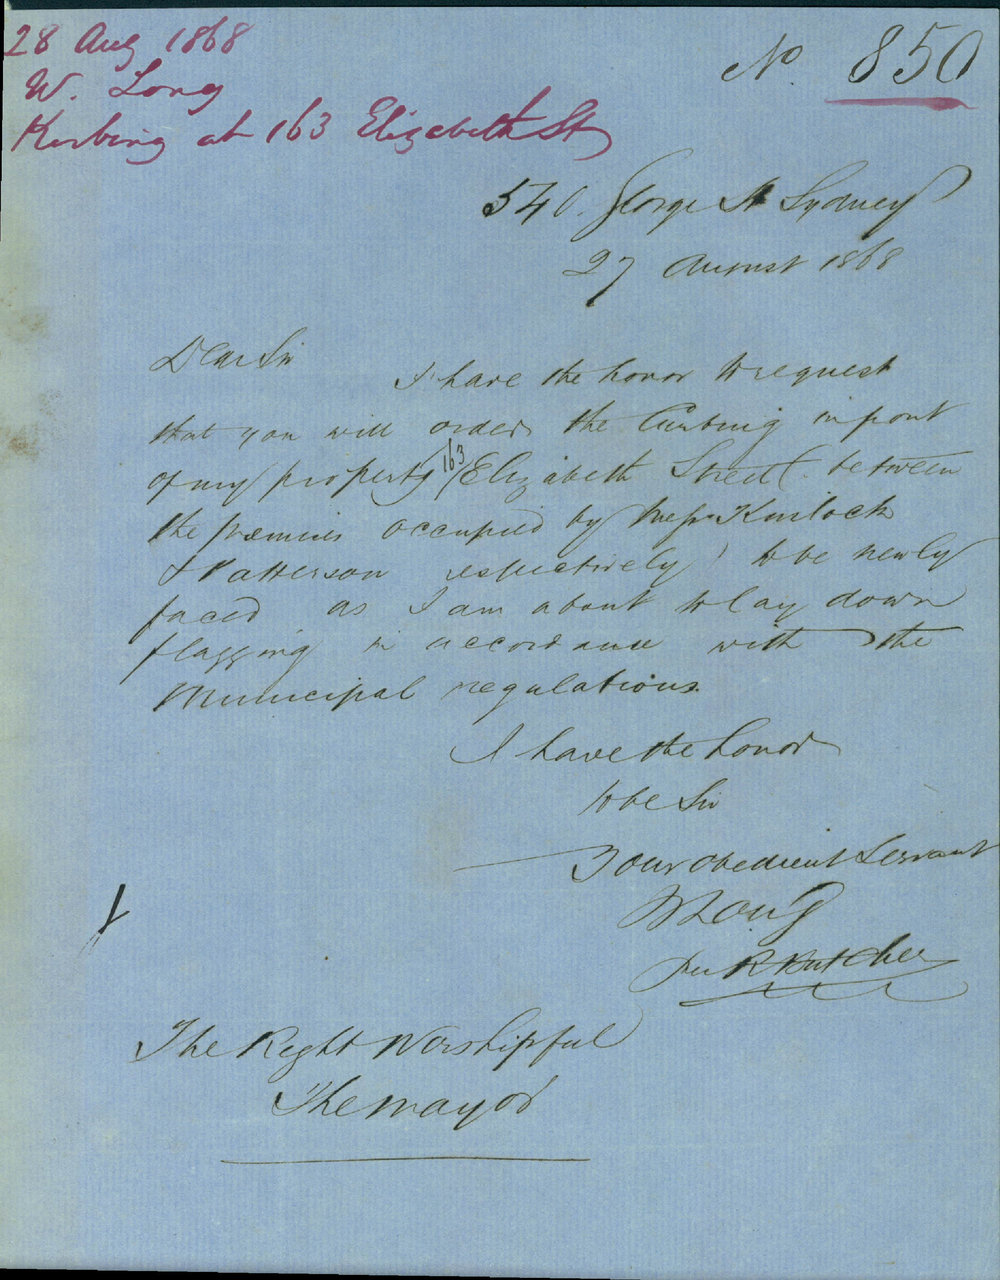 28 Aug 1868
W. Long
Kerbing at 163 Elizabeth St
No 850
540. George St Sydney
27 August 1868
Dear Sir
I have the honor to request
that you will order the Curbing in front
of my property 163 Elizabeth Street between
the premises occupied by Messrs Kinloch
& Patterson respectively to be newly
faced as I am about to lay down
flagging in accordance with the
Municipal regulations.
I have the honor
to be Sir
Your obedient Servant
W Long
per R Butcher
The Right Worshipful
The Mayor